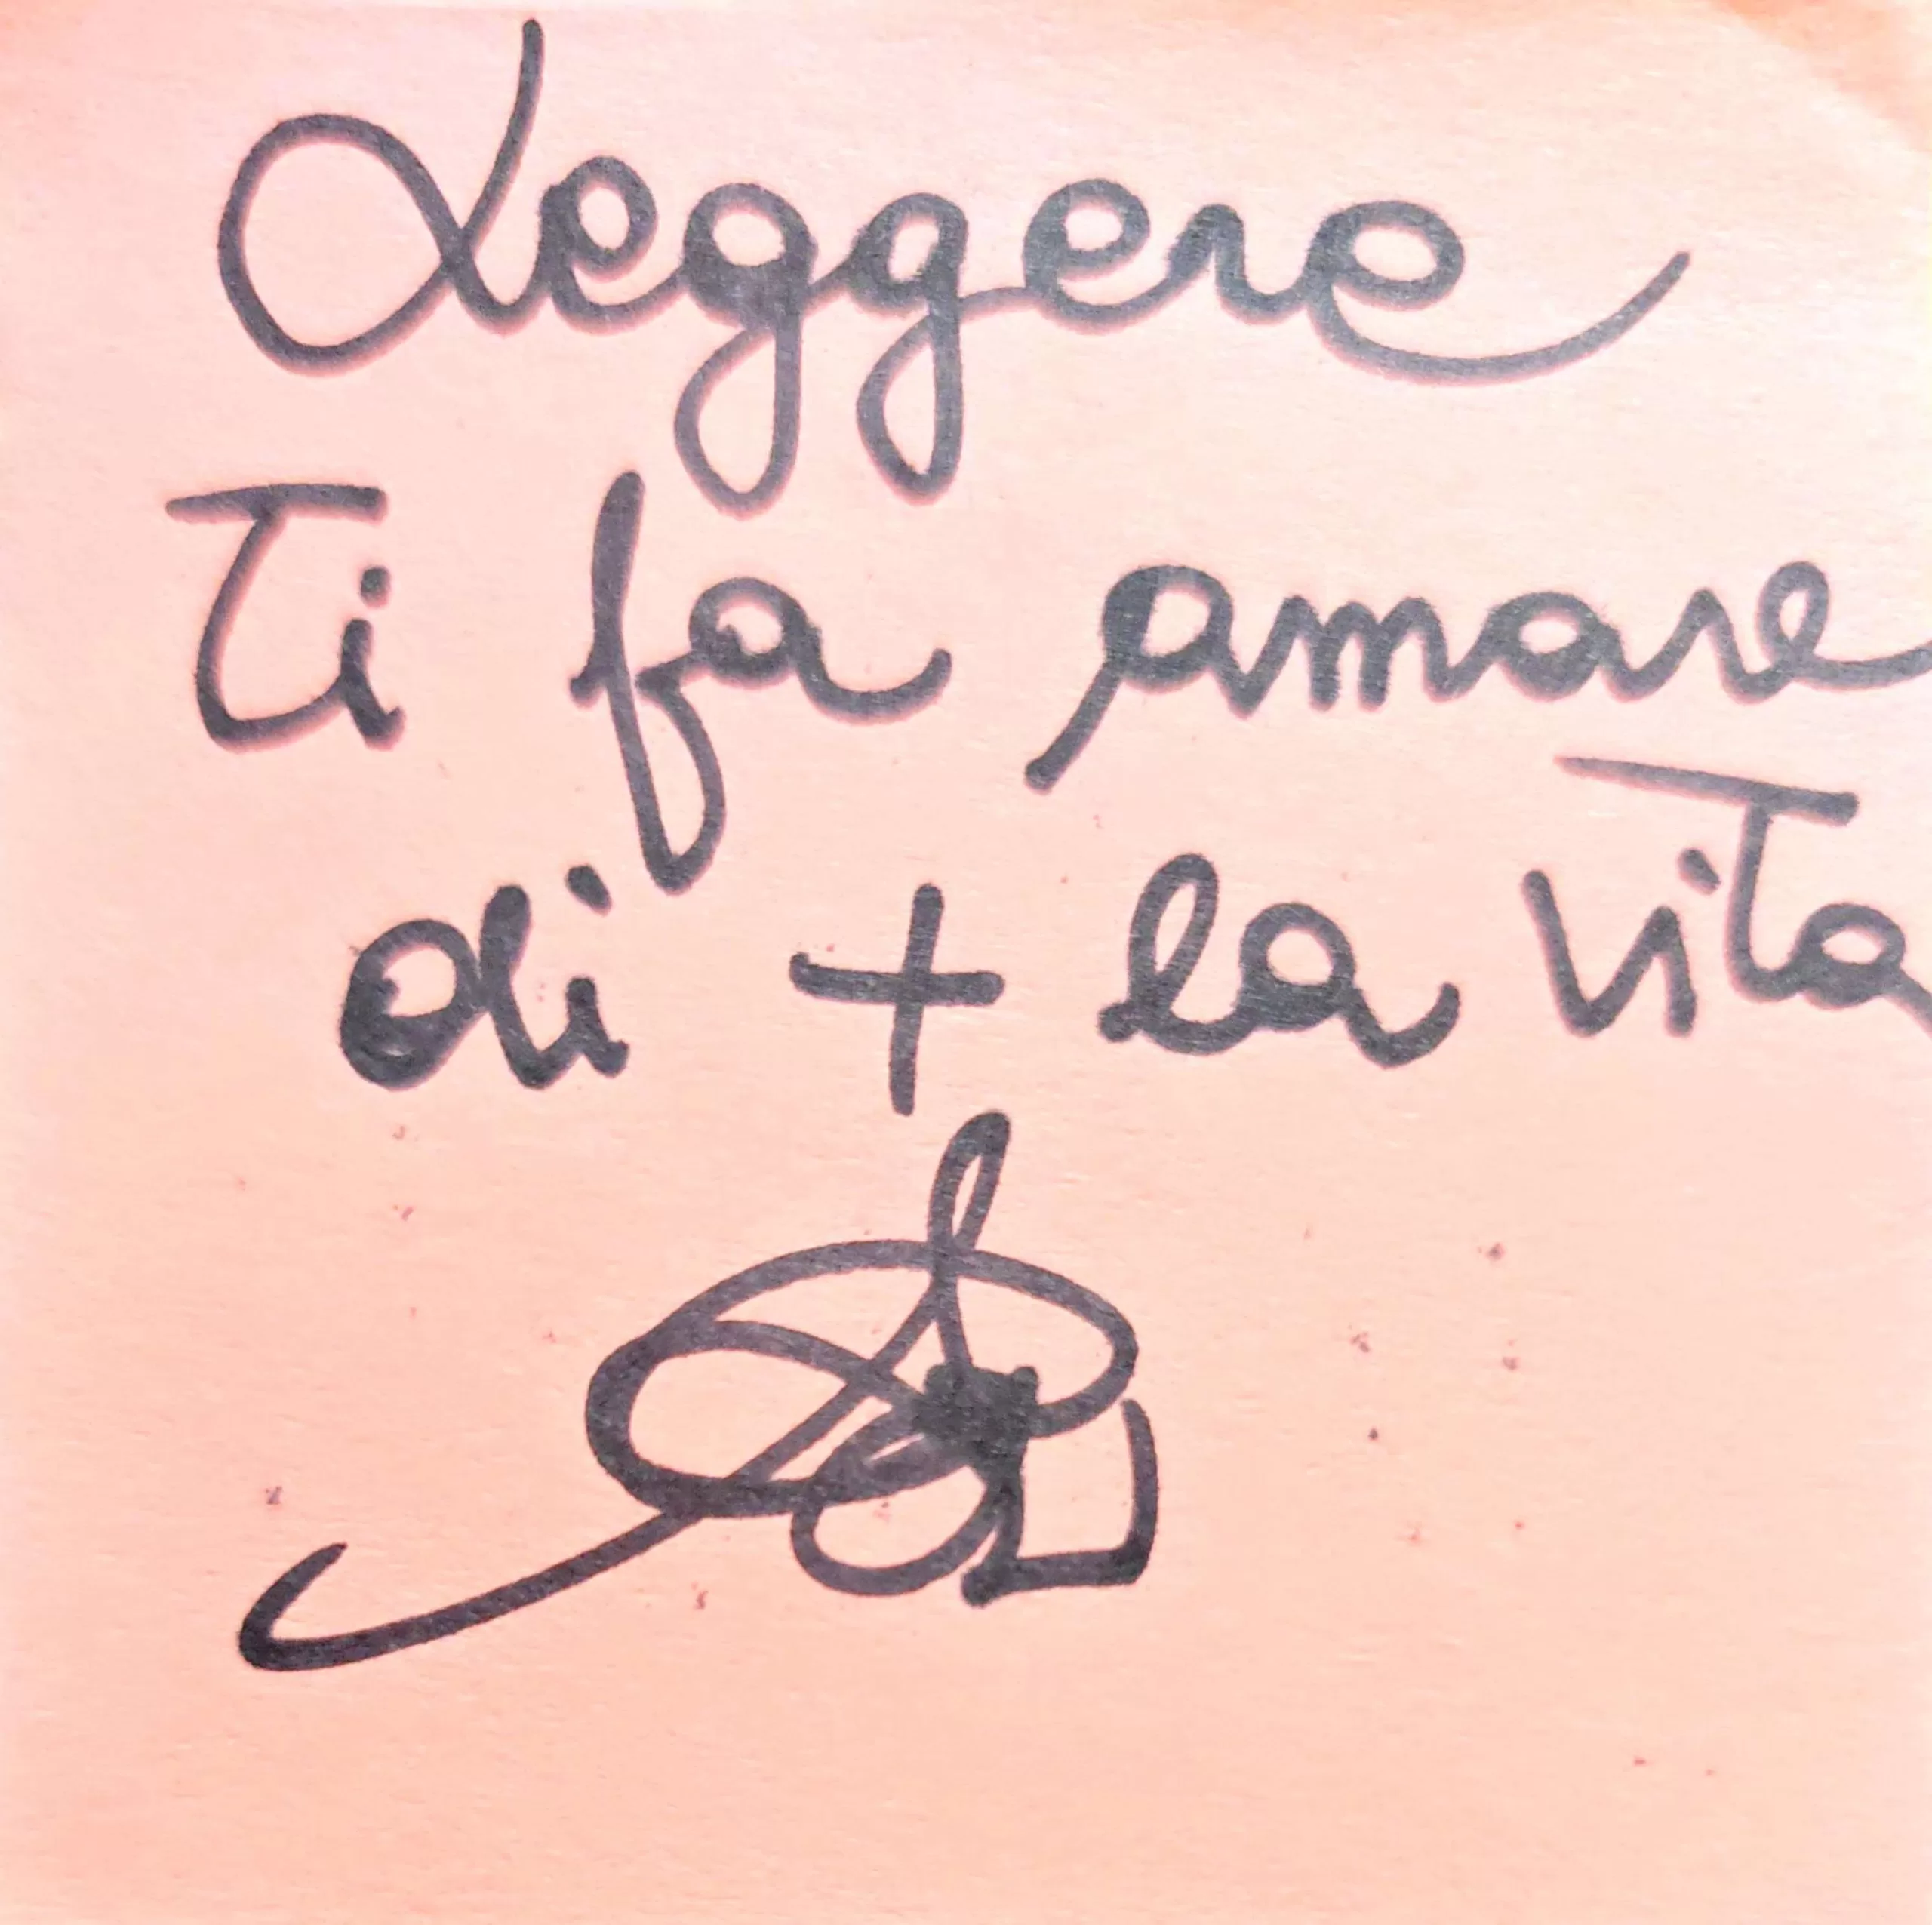 Leggere
Ti fa amare
di + la vita